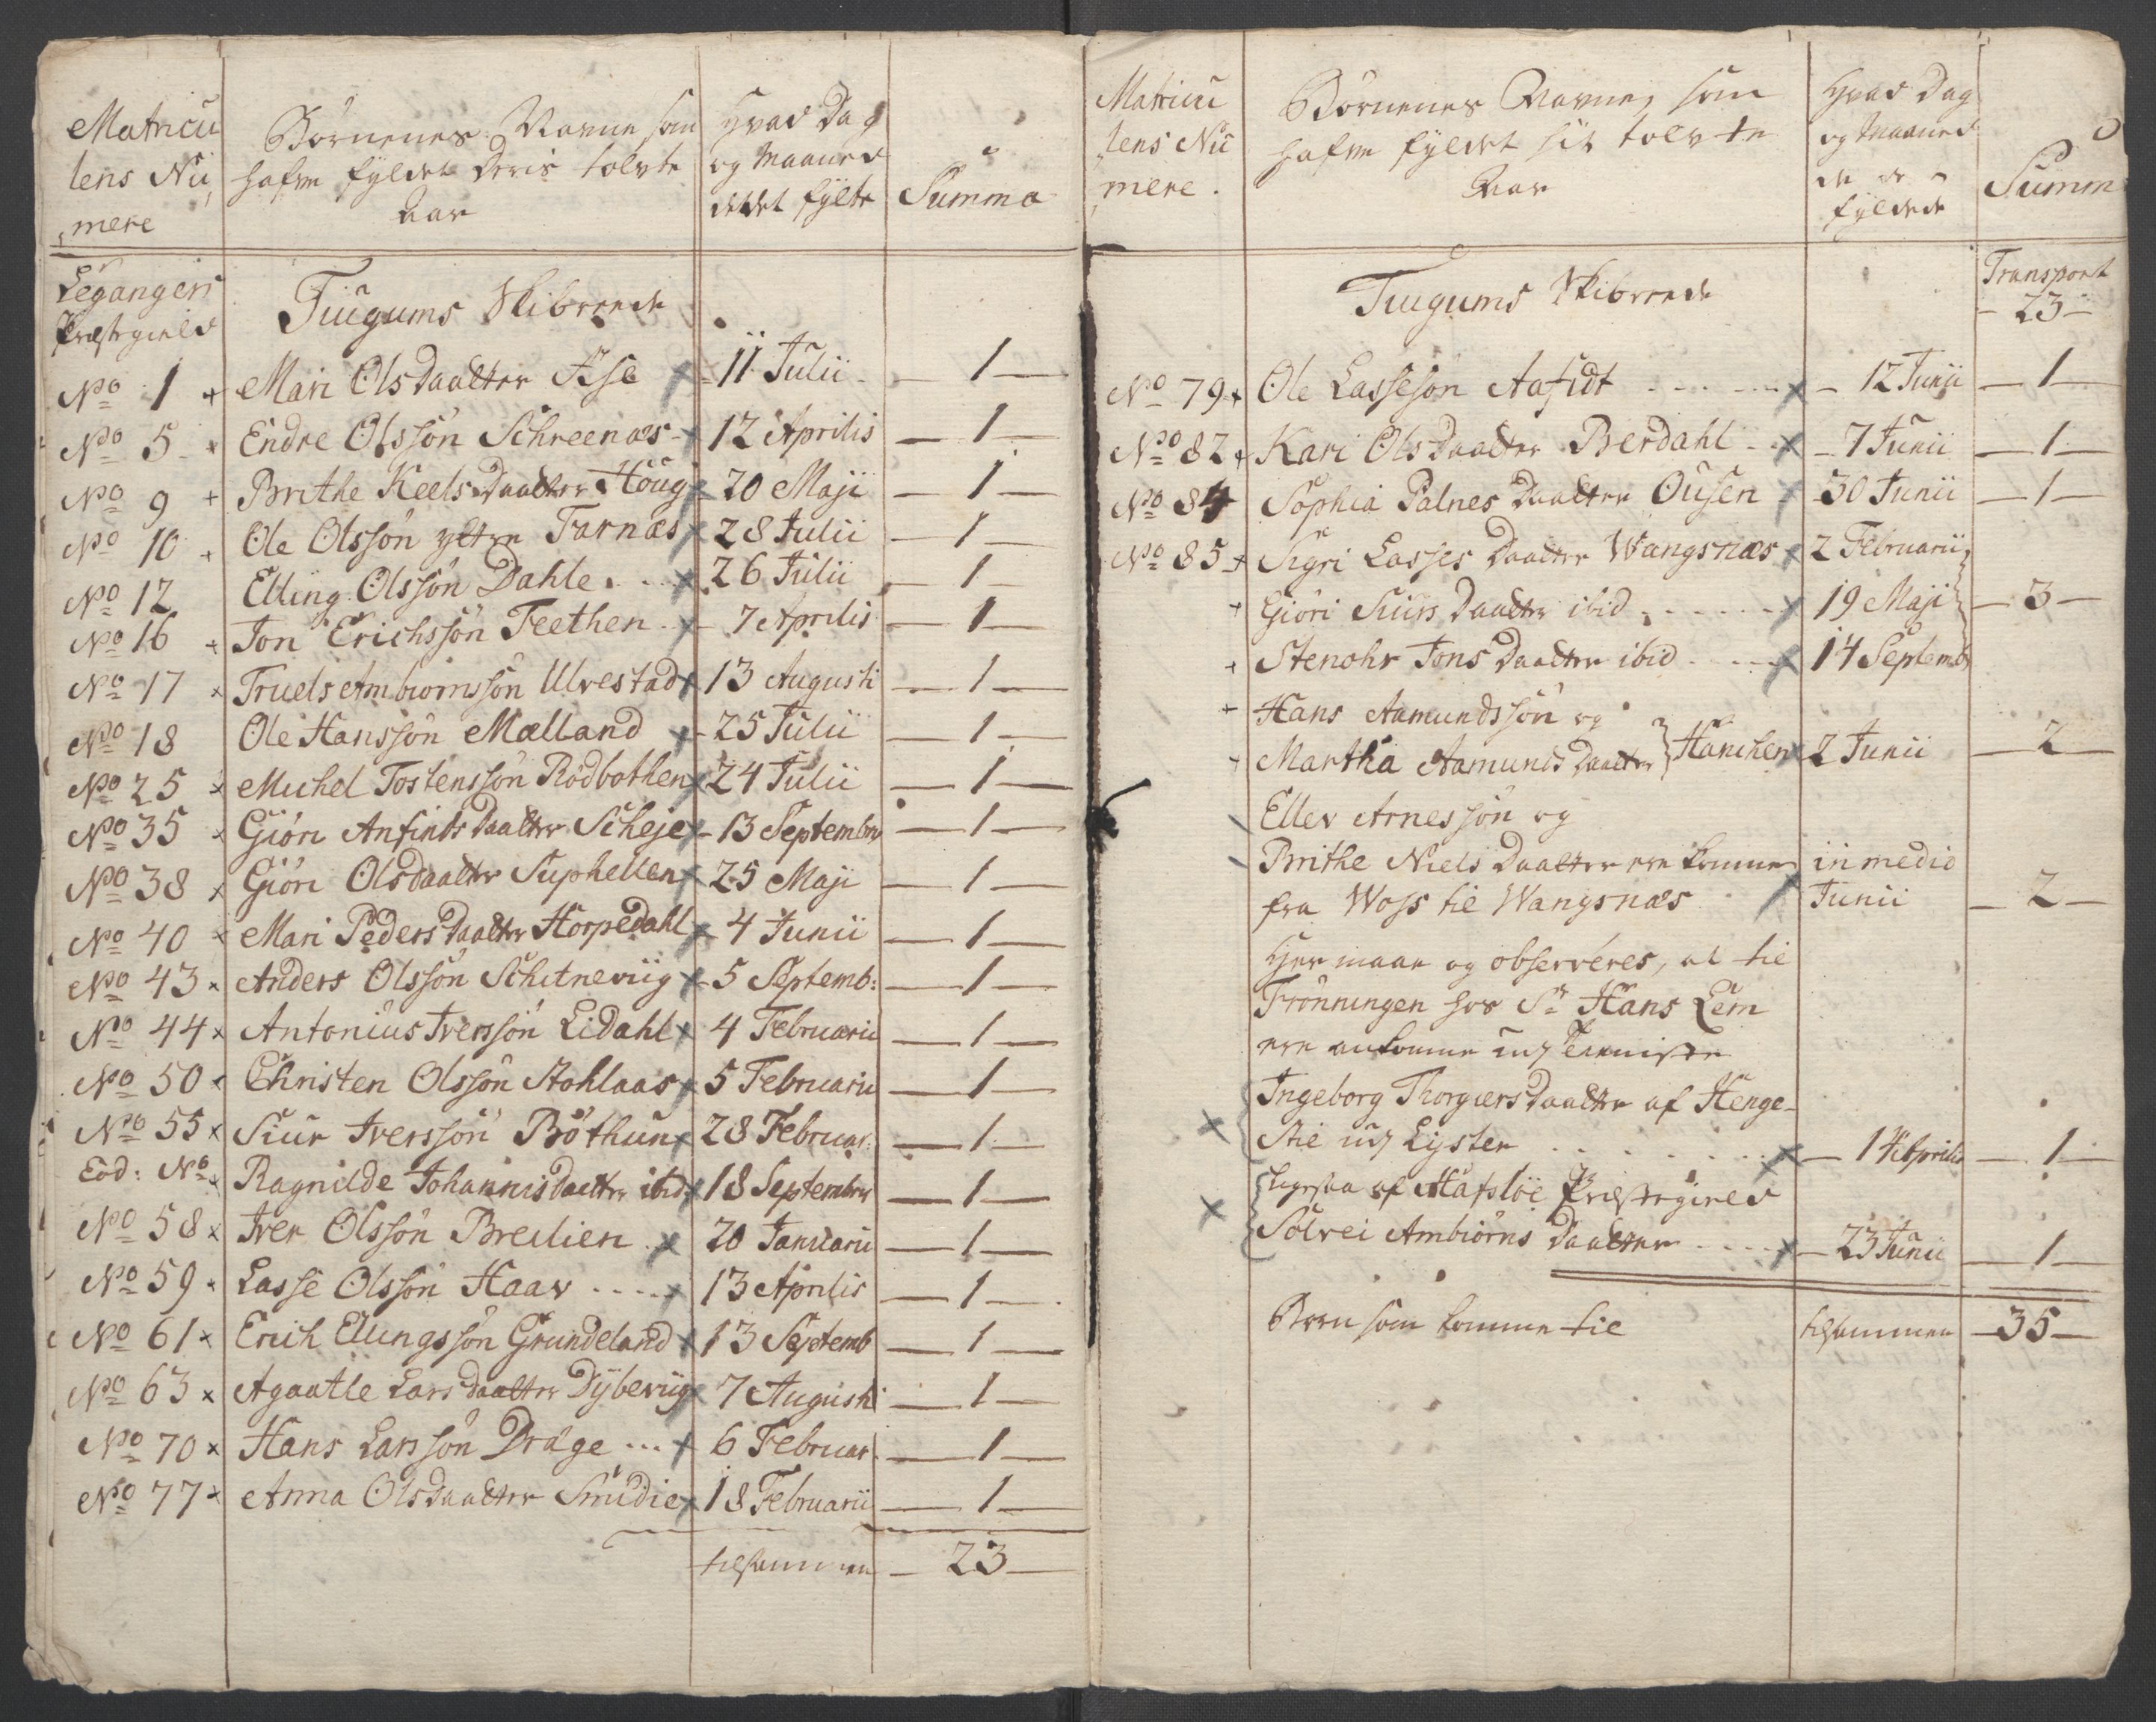 Matricu
lens Nu
mere
Börnenes Navne som
hafve fyldet deris tolvte
Aar
Hvad Dag
og Maaned
de det fylte
Summa
Leganger
Præstegield
Tiugums Skibreede
No 1 Mari Olsdaatter Fise 11 Julii 1
No 5 Endre Olssön Schreenæs 12 Aprilis 1
No 9 Brithe Keelsdaatter Houg 20 Maji 1
No 10 Ole Olssön yttre Farnæs 28 Julii 1
No 12 Elling Olssön Dahle 26 Julii 1
No 16 Jon Erichssön Feethen 7 Aprilis 1
No 17 Truels Ambiornssön Ulvestad 13 Augusti 1
No 18 Ole Hanssön Mælland 25 Julii 1
No 25 Michel Tostenssön Rödbothen 24 Julii 1
No 35 Giöri Anfindsdaatter Scheje 13 Septembr 1
No 38 Giöri Olsdaatter Suphellen 25 Maji 1
No 40 Mari Pedersdaatter Horpedahl 4 Junii 1
No 43 Anders Olssön Schitneviig 5 Septemb: 1
No 44 Antonius Iverssön Eidahl 4 Februarii 1
No 50 Christen Olssön Stohlaas 5 Februarii 1
No 55 Siur Iverssön Böthun 28 Februar: 1
Eod: No Ragnilde Johannisdaatter ibid 18 Septembr 1
No 58 Iver Olssön Breilien 20 Januarii 1
No 59 Lasse Olssön Haav 13 Aprilis 1
No 61 Erich Ellingssön Grundeland 13 Septemb 1
No 63 Agaatle Larsdaatter Dybeviig 7 Augusti 1
No 70 Hans Larssön Drage 6 Februar 1
No 77 Anna Olsdaatter Smidie 18 Februarii 1
tilsammen 23
Matricu
lens Nu
mere.
Börnenes Navne, som
hafve fyldet sit tolvte
Aar
Hvad Dag
og Maaned
de det
fyldede
Summ
Tiugums Skibreede
Transport
23
No 79 Ole Lassesön Aafidt 12 Junii 1
No 82 Kari Olsdaatter Berdahl 7 Junii 1
No 84 Sophia Palnesdaatter Ousen 30 Junii 1
No 85 Sigri Lassesdaatter Wangsnæs 2 Februarii
Giöri Siursdaatter ibid 19 Maji 3
Stenohr Jonsdaatter ibid 14 Septemb
Hans Aamundssön og
Martha Aamundsdaatter Hanchen 2 Junii 2
Ellev Arnessön og
Brithe Nielsdaatter ere komne in medio
fra Woss til Wangsnæs Junii 2
Her maae og observeres, at til
Trönningen hos Sr Hans Lem
ere ankomne
Ingeborg Thorgiersdaatter af Henge-
stie udj Lyster 14 Aprilis 1
Ligesaa af Hafsloe Præstegield
Sölvei Ambiörnsdaatter 23 Junii 1
Börn som komme til tilsammen 35